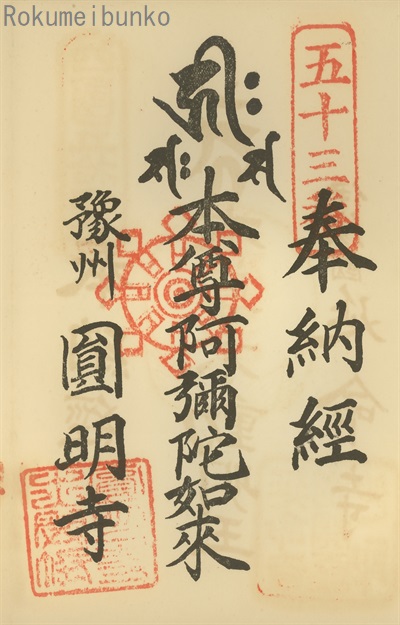 Rokumeibunko
五十三番
奉納經
本尊阿彌陀如來
豫州
圓明寺